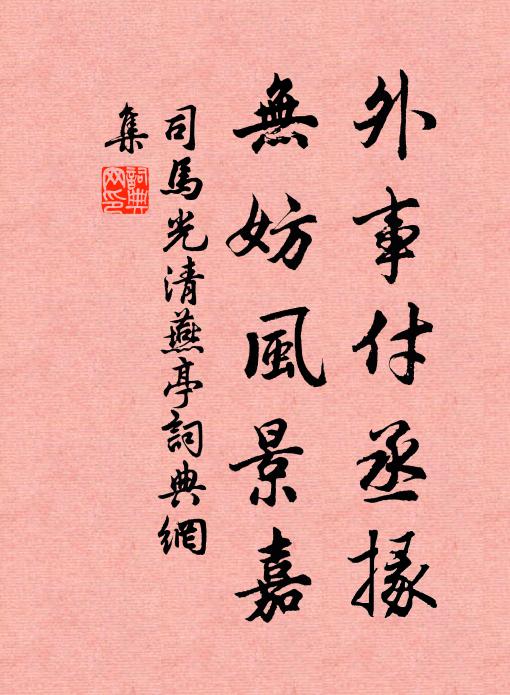 外事付丞掾
無妨風景嘉
司馬光清燕亭詞典網
集
詞典网印